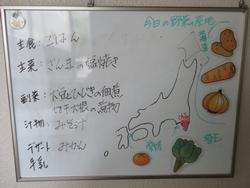 今日の野菜の産地
北海道
主食：ごはん
主菜：さんまの塩焼き
副菜：大豆とひじきの佃煮
切干大根の煮物
汁物：みそ汁
デザート みかん
牛乳
愛媛
埼玉